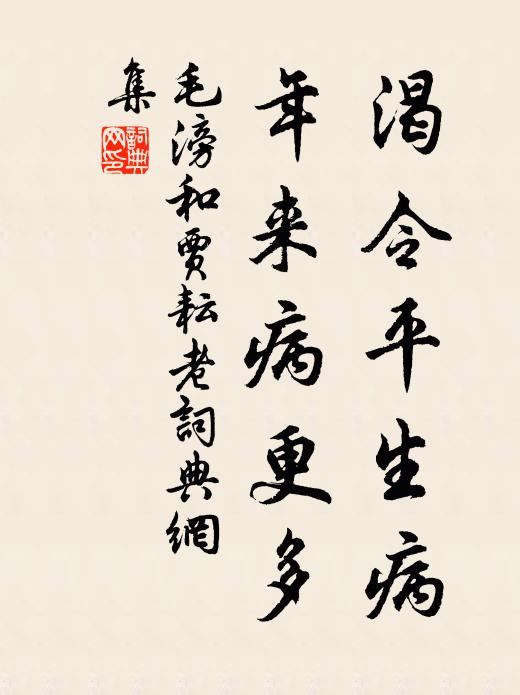 渴令平生病
年来病更多
毛滂和賈耘老詞典網
集
詞典網印